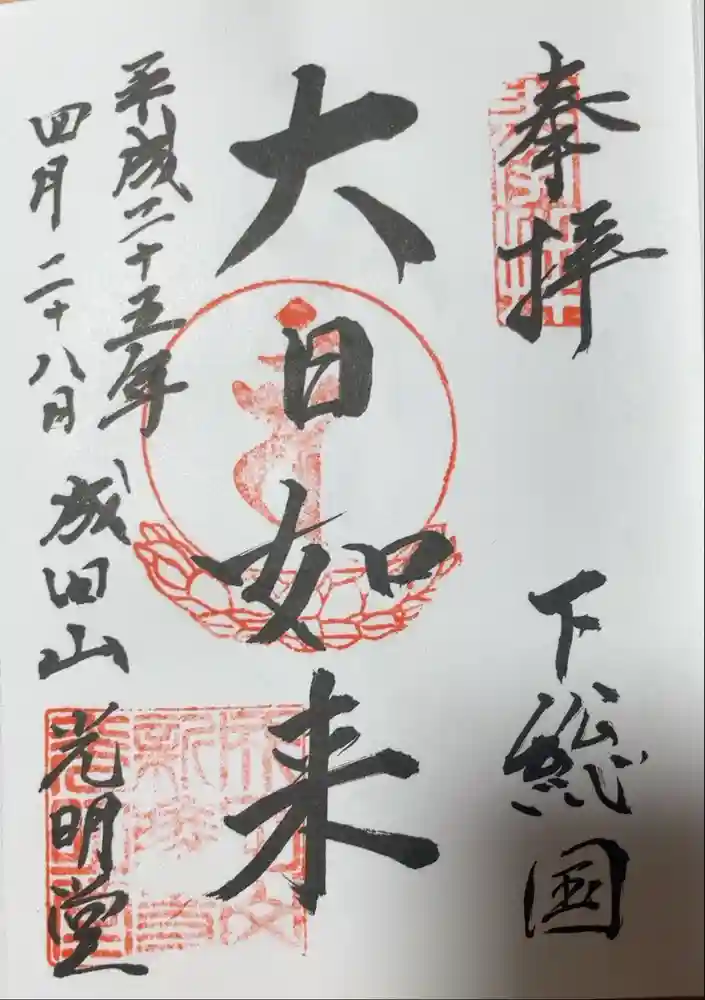 奉拝
下総国
大日如来
平成二十五年
四月二十八日
成田山光明堂